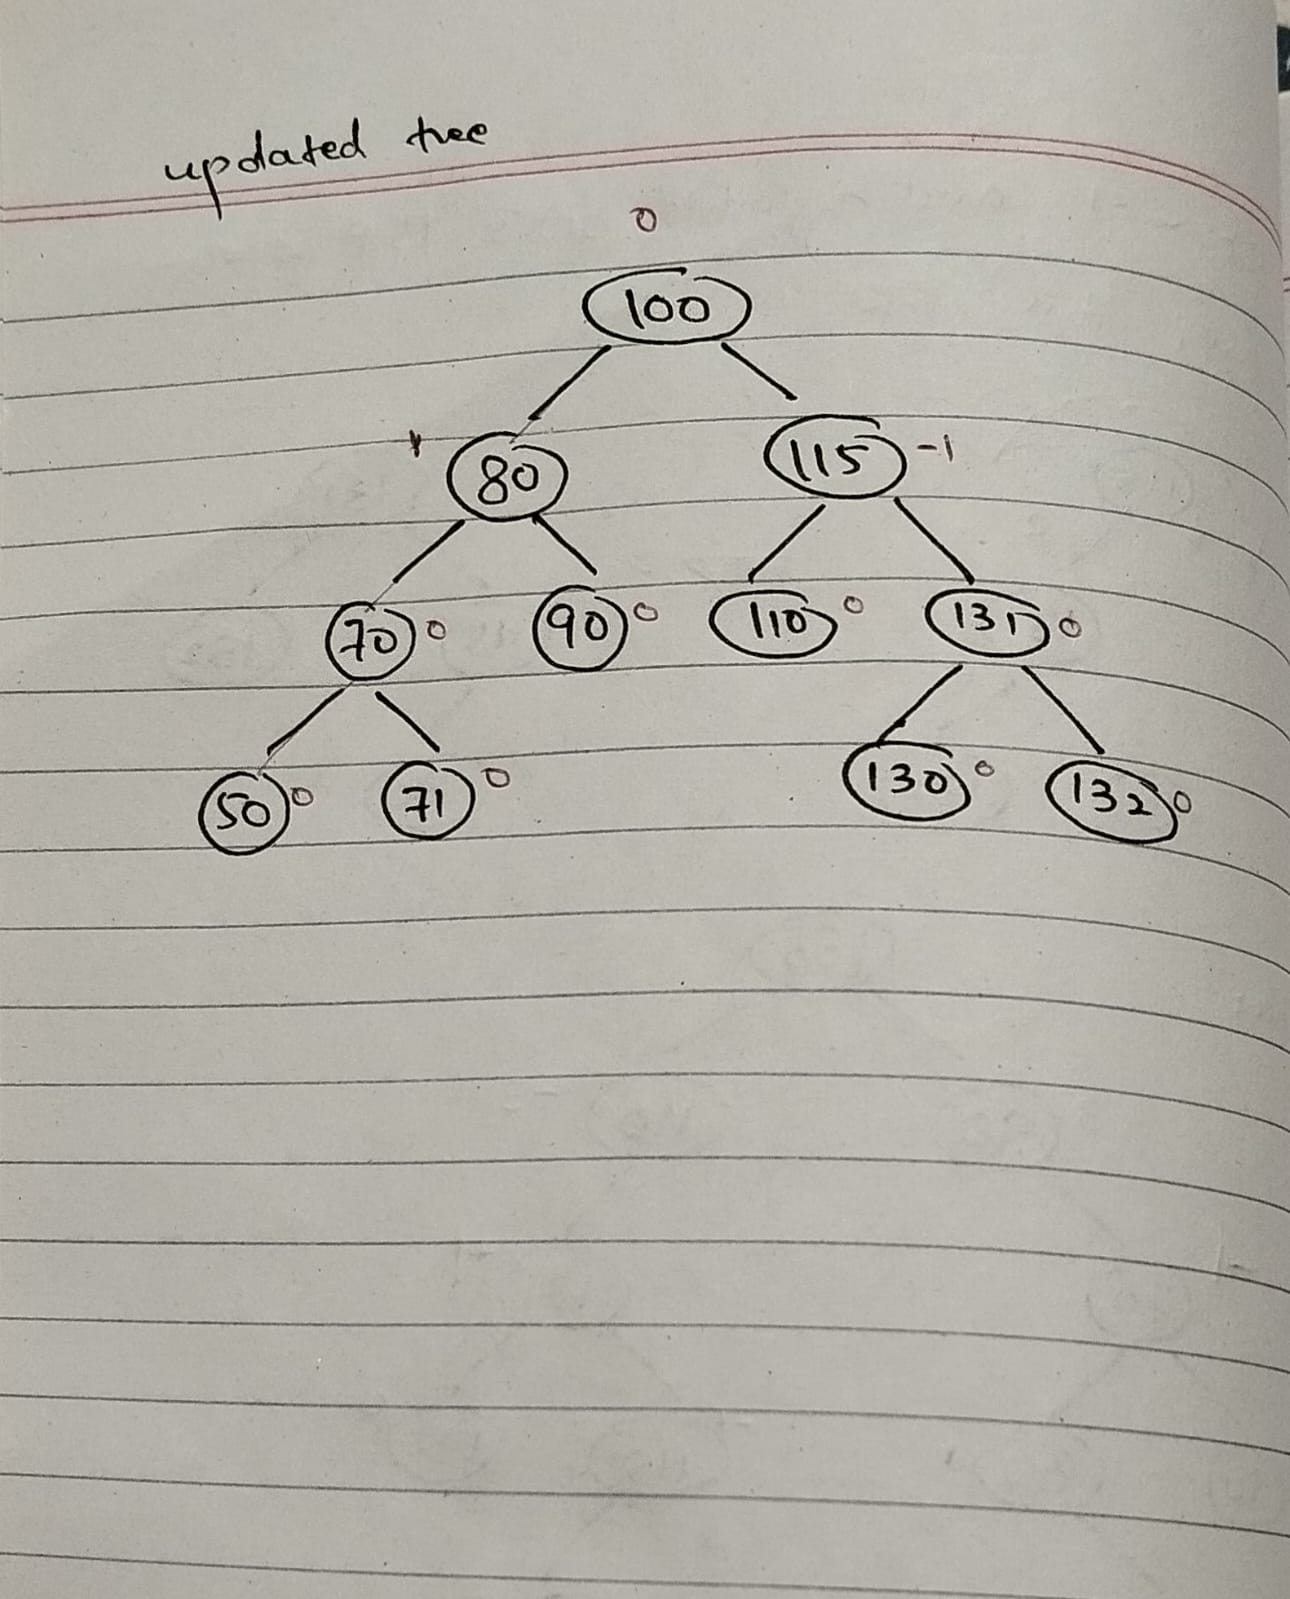 updated tree
0
100
80 115 -1
70 0 90 0 110 0 131 0
50 0 71 0 130 0 132 0